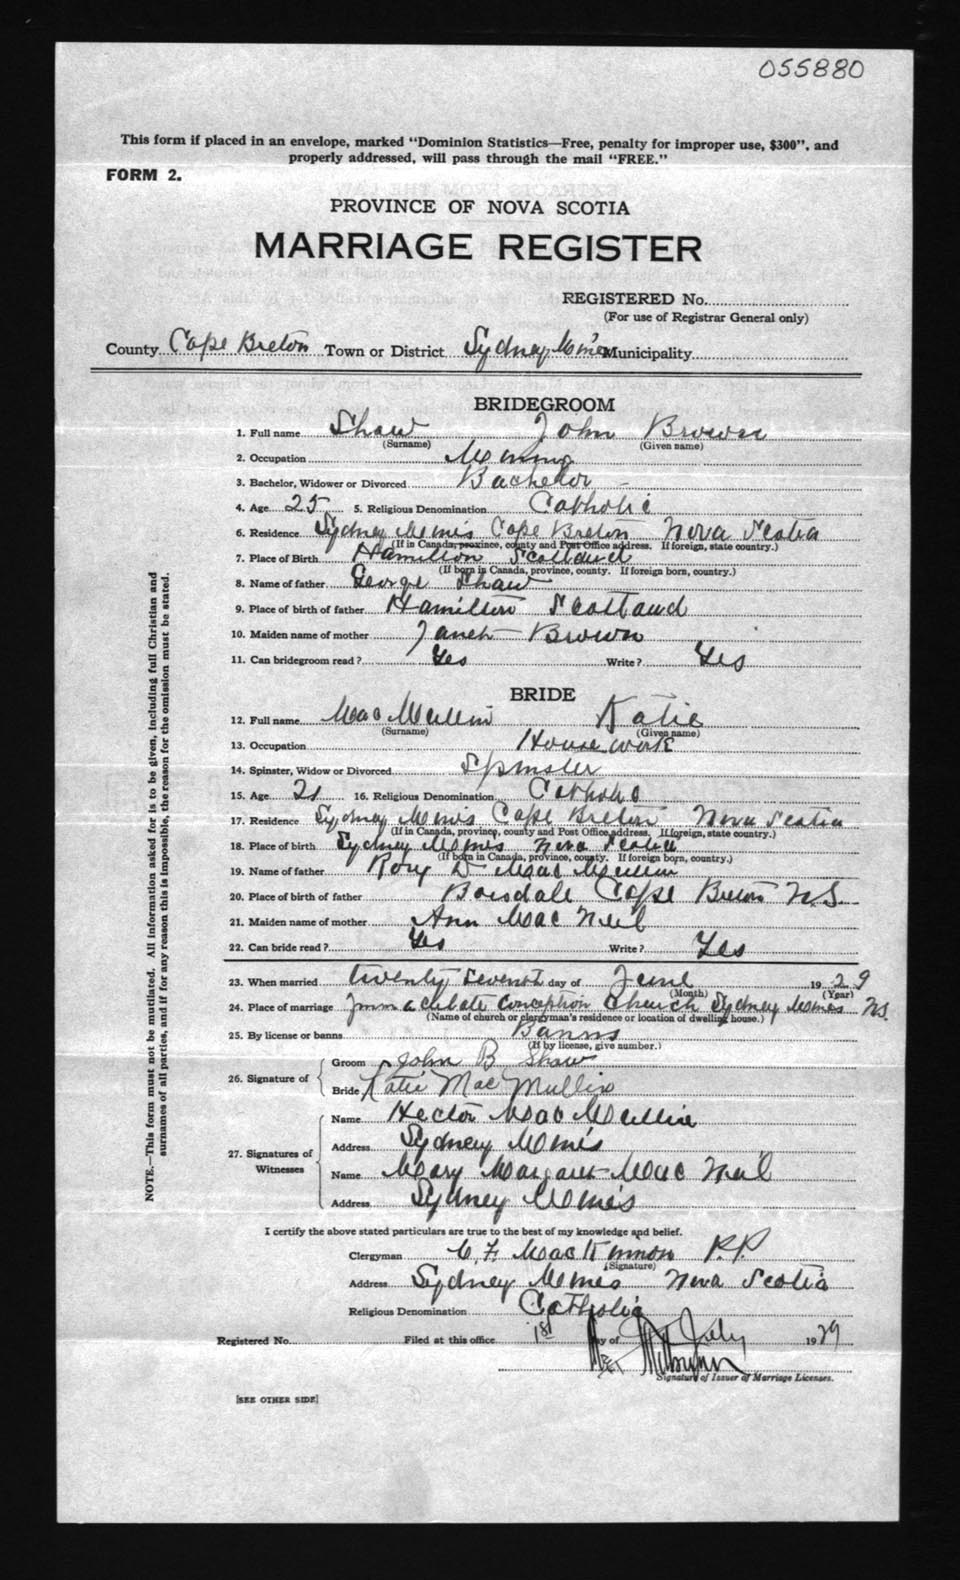 055880
This form if placed in an envelope, marked "Dominion Statistics—Free, penalty for improper use, $300", and
properly addressed, will pass through the mail "FREE."
FORM 2.
PROVINCE OF NOVA SCOTIA
MARRIAGE REGISTER
REGISTERED No.
(For use of Registrar General only)
County Cape Breton Town or District Sydney Mines Municipality
BRIDEGROOM
1. Full name Shaw John Brown
(Surname) (Given name)
2. Occupation Mining
3. Bachelor, Widower or Divorced Bachelor
4. Age 25 5. Religious Denomination Catholic
6. Residence Sydney Mines Cape Breton Nova Scotia
(If in Canada, province, county and Post Office address. If foreign, state country.)
7. Place of Birth Hamilton Scotland
(If born in Canada, province, county. If foreign born, country.)
8. Name of father George Shaw
9. Place of birth of father Hamilton Scotland
10. Maiden name of mother Janet Brown
11. Can bridegroom read? Yes Write? Yes
BRIDE
12. Full name Mac Mullin Katie
(Surname) (Given name)
13. Occupation House work
14. Spinster, Widow or Divorced Spinster
15. Age 21 16. Religious Denomination Catholic
17. Residence Sydney Mines Cape Breton Nova Scotia
(If in Canada, province, county and Post Office address. If foreign, state country.)
18. Place of birth Sydney Mines Nova Scotia
(If born in Canada, province, county. If foreign born, country.)
19. Name of father Rory D Mac Mullin
20. Place of birth of father Boisdale Cape Breton N.S.
21. Maiden name of mother Ann Mac Neil
22. Can bride read? Yes Write? Yes
23. When married twenty seventh day of June 1929
(Month) (Year)
24. Place of marriage Immaculate Conception Church Sydney Mines N.S.
(Name of church or clergyman's residence or location of dwelling house.)
25. By license or banns Banns
(If by license, give number.)
26. Signature of
Groom John B Shaw
Bride Katie Mac Mullin
27. Signatures of Witnesses
Name Hector Mac Mullin
Address Sydney Mines
Name Mary Margaret Mac Neil
Address Sydney Mines
I certify the above stated particulars are true to the best of my knowledge and belief.
Clergyman C. F. MacKinnon P.P.
(Signature)
Address Sydney Mines Nova Scotia
Religious Denomination Catholic
Registered No. Filed at this office 1st day of July 1929
Signature of Issuer of Marriage Licenses.
[SEE OTHER SIDE]
NOTE.—This form must not be mutilated. All information asked for is to be given, including full Christian and
surnames of all parties, and if for any reason this is impossible, the reason for the omission must be stated.